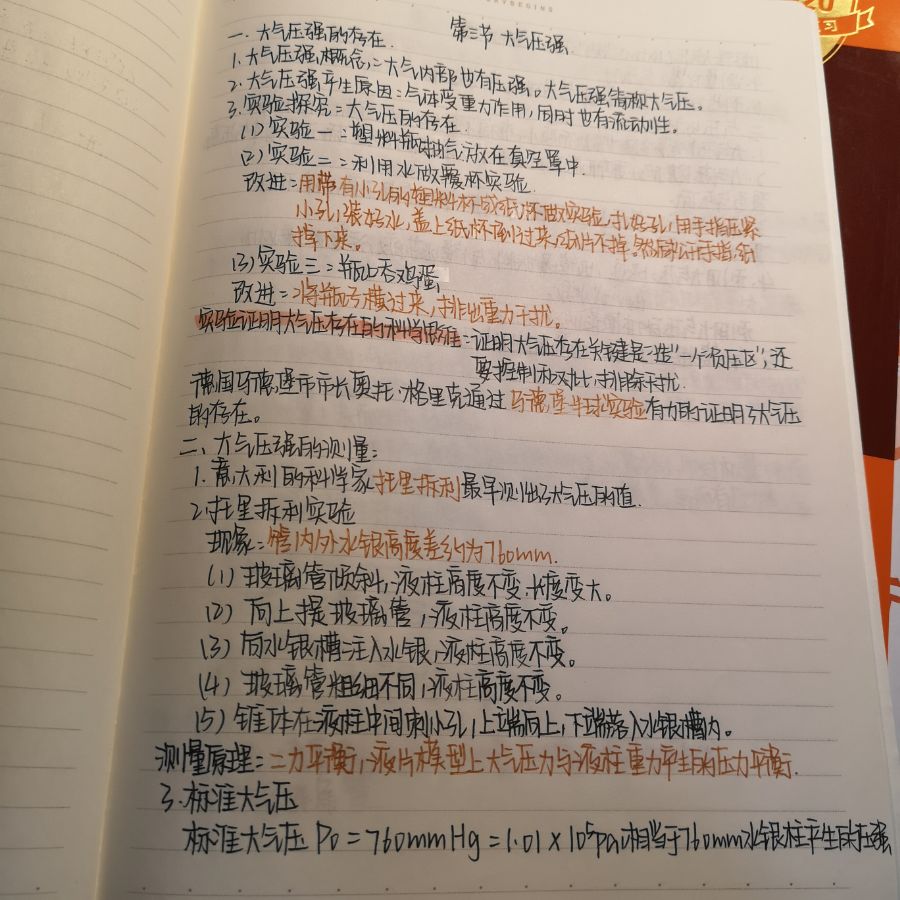 第三节 大气压强
一、大气压强的存在.
1.大气压强概念:大气内部也有压强。大气压强简称大气压。
2.大气压强产生原因:气体受重力作用,同时也有流动性。
3.实验探究:大气压的存在.
(1)实验一:塑料瓶抽气放在真空罩中.
(2)实验二:利用水做覆杯实验.
改进:用带有小孔的塑料杯或纸杯做实验,扎好孔,用手指压紧
小孔,装好水,盖上纸杯倒过来,纸片不掉.然后松开手指,纸
掉下来。
(3)实验三:瓶吞鸡蛋
改进:将瓶子横过来,排出重力干扰。
实验证明大气压存在的科学思维:证明大气压存在关键是:造"一个负压区",还
要控制和对比,排除干扰.
德国马德堡市市长奥托·格里克通过马德堡半球实验有力的证明了大气压
的存在。
二、大气压强的测量:
1.意大利的科学家托里拆利最早测出了大气压的值.
2.托里拆利实验
现象:管内外水银高度差约为760mm.
(1)玻璃管倾斜,液柱高度不变.长度变大。
(2)向上提玻璃管,液柱高度不变。
(3)向水银槽注入水银,液柱高度不变。
(4)玻璃管粗细不同,液柱高度不变。
(5)锥体在液柱中间刺小孔,上端向上,下端落入水银槽内。
测量原理:二力平衡,液片模型上大气压力与液柱重力产生的压力平衡.
3.标准大气压
标准大气压P0=760mmHg=1.01×10⁵pa相当于760mm水银柱产生的压强